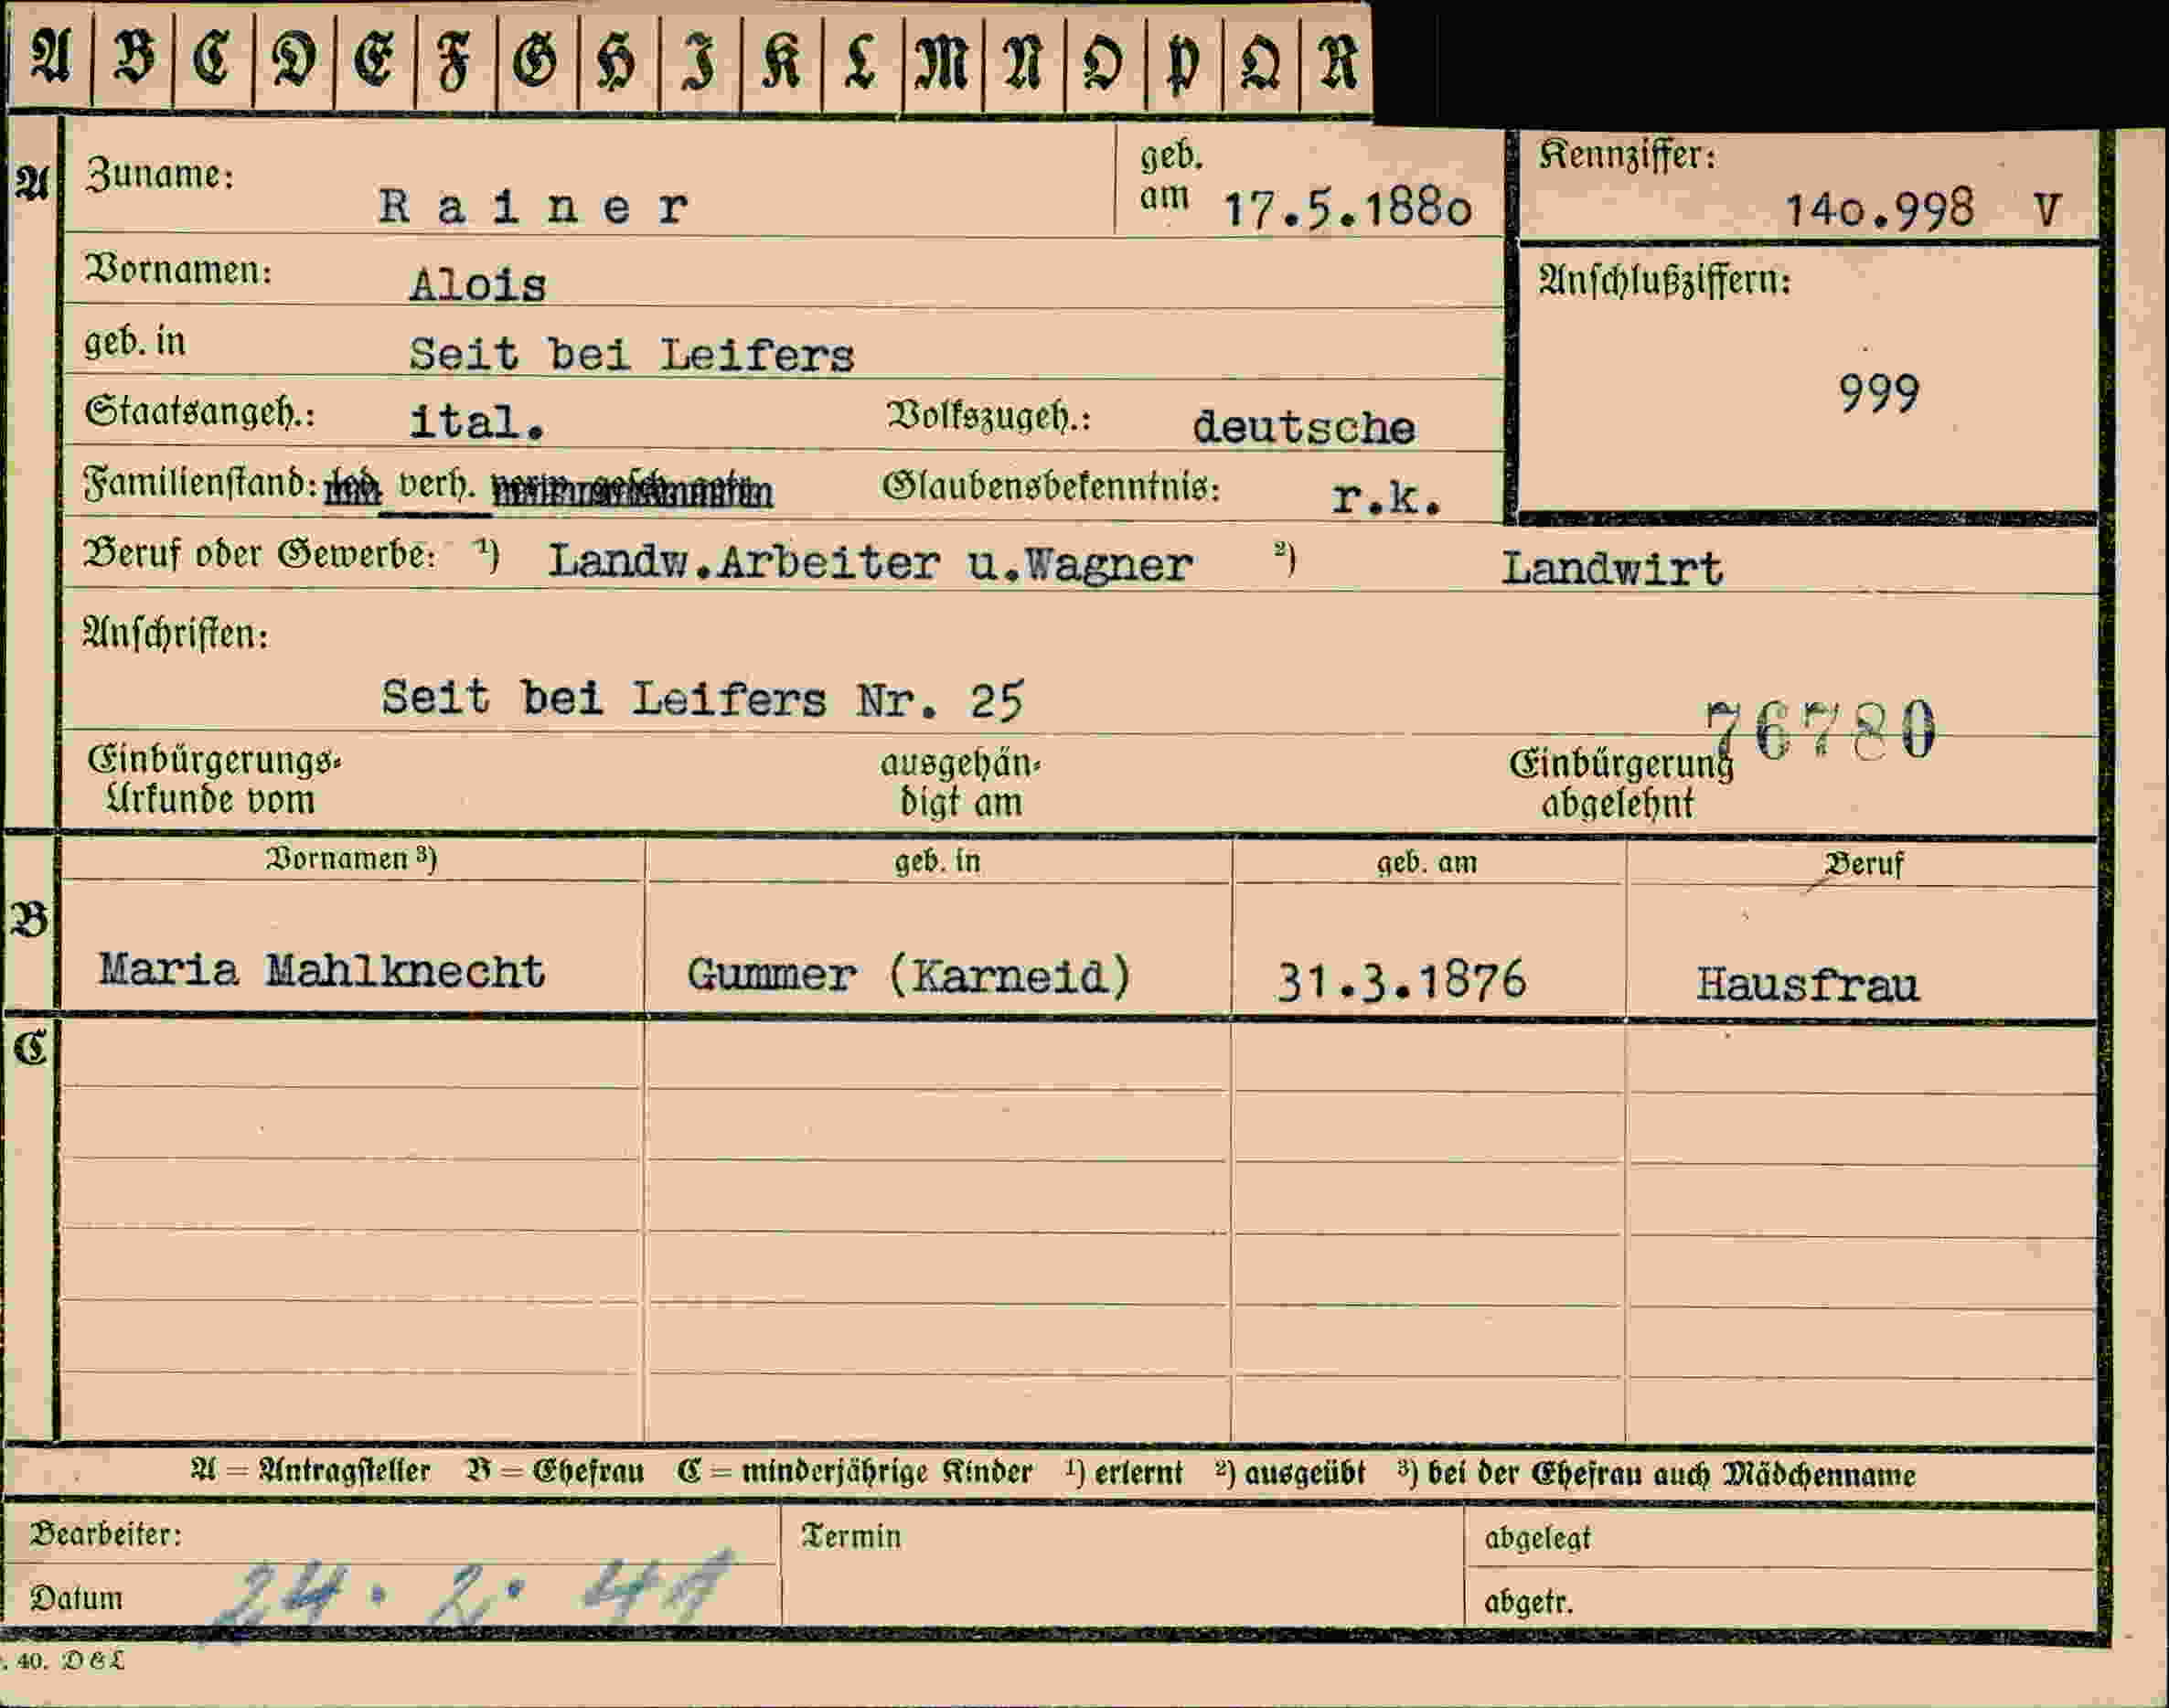 A B C D E F G H I K L M N O P Q R
A Zuname: Rainer geb. am 17.5.1880 Kennziffer: 140.998 V
Vornamen: Alois Anschlußziffern:
geb. in Seit bei Leifers
999
Staatsangeh.: ital. Volkszugeh.: deutsche
Familienstand: verh. Glaubensbekenntnis: r.k.
Beruf oder Gewerbe: ¹) Landw.Arbeiter u.Wagner ²) Landwirt
Anschriften:
Seit bei Leifers Nr. 25
76780
Einbürgerungs- ausgehän- Einbürgerung
Urkunde vom digt am abgelehnt
Vornamen ³) geb. in geb. am Beruf
B
Maria Mahlknecht Gummer (Karneid) 31.3.1876 Hausfrau
C
A = Antragsteller B = Ehefrau C = minderjährige Kinder ¹) erlernt ²) ausgeübt ³) bei der Ehefrau auch Mädchenname
Bearbeiter: Termin abgelegt
Datum 24. 2. 41 abgetr.
. 40. D & L